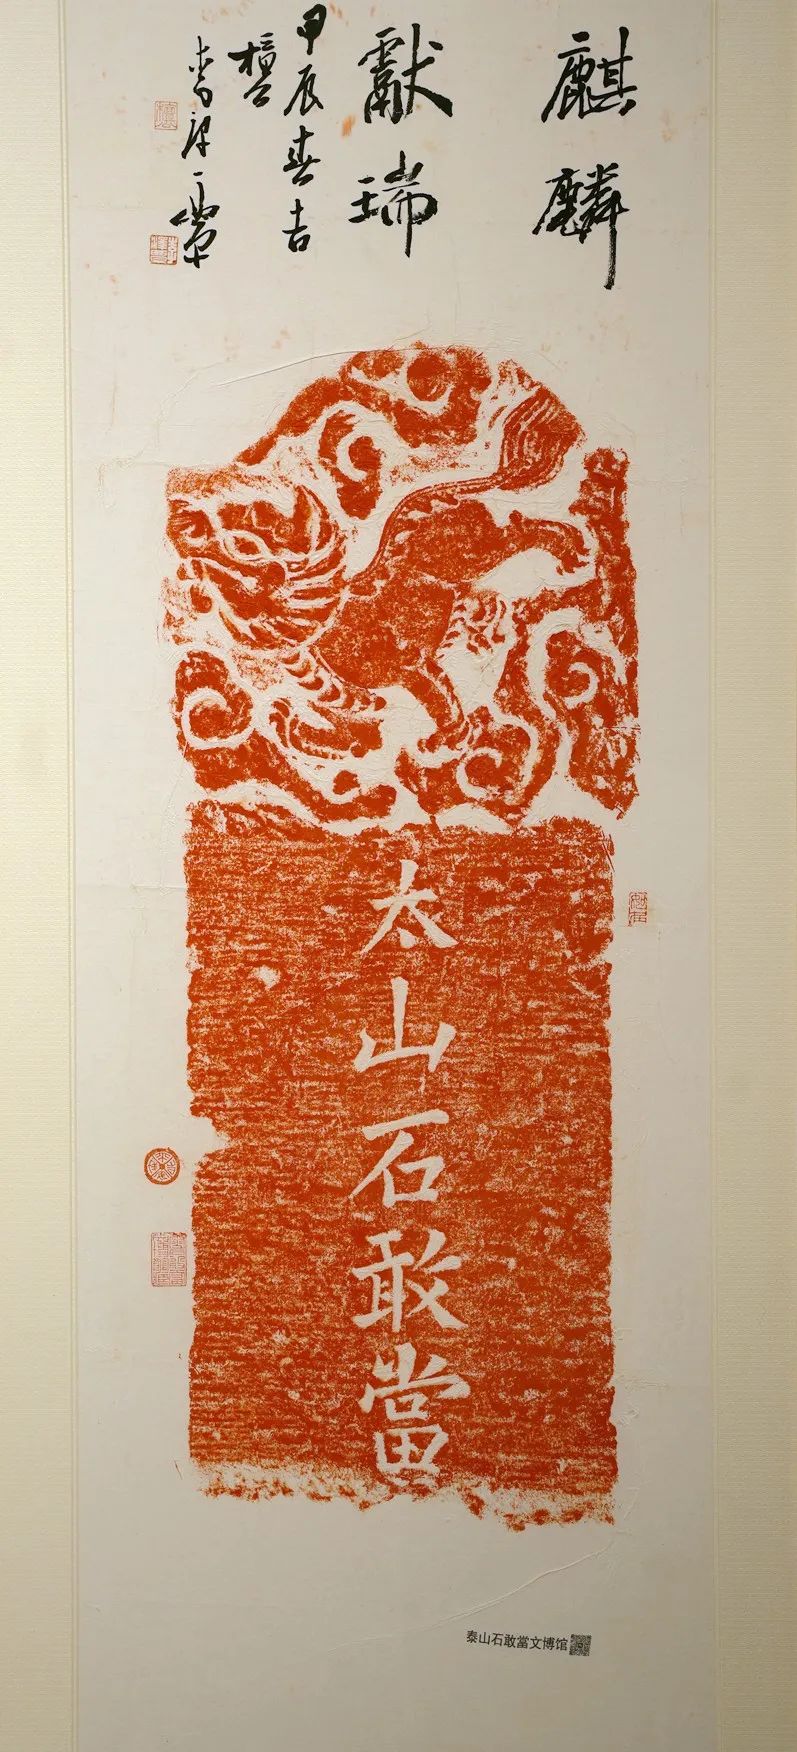 麒麟
獻瑞
甲辰春吉
太山石敢當
泰山石敢當文博馆